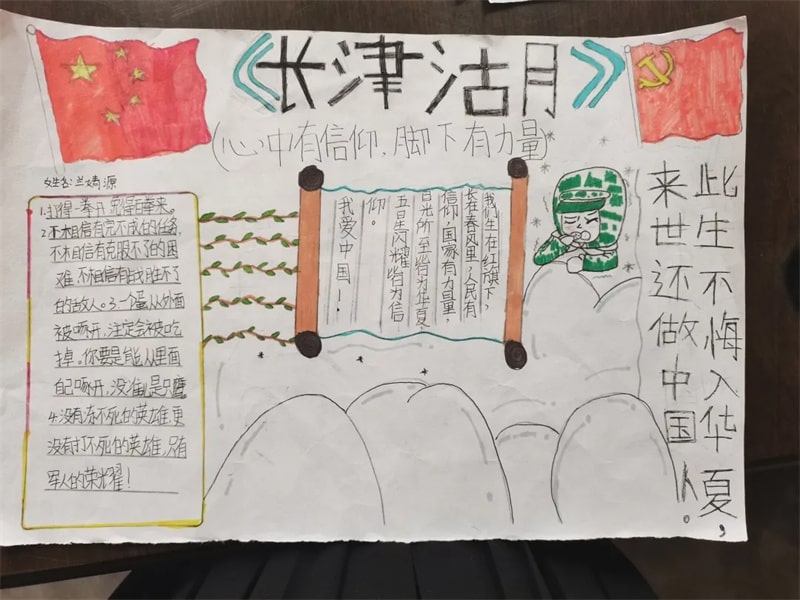 《长津湖》
(心中有信仰,脚下有力量)
姓名:兰婧源
1.打得一拳开,免得百拳来。
2.不相信有完不成的任务,
不相信有克服不了的困
难,不相信有战胜不了
的敌人。3.一个蛋从外面
被啄开,注定会被吃
掉。你要是能从里面
自己啄开,没准是只鹰
4.没有冻不死的英雄,更
没有打不死的英雄,只有
军人的荣耀!
我们生在红旗下,
长在春风里,人民有
信仰,国家有力量,
目光所至皆为华夏,
五星闪耀皆为信
仰。
我爱中国!
此生不悔入华夏,
来世还做中国人。